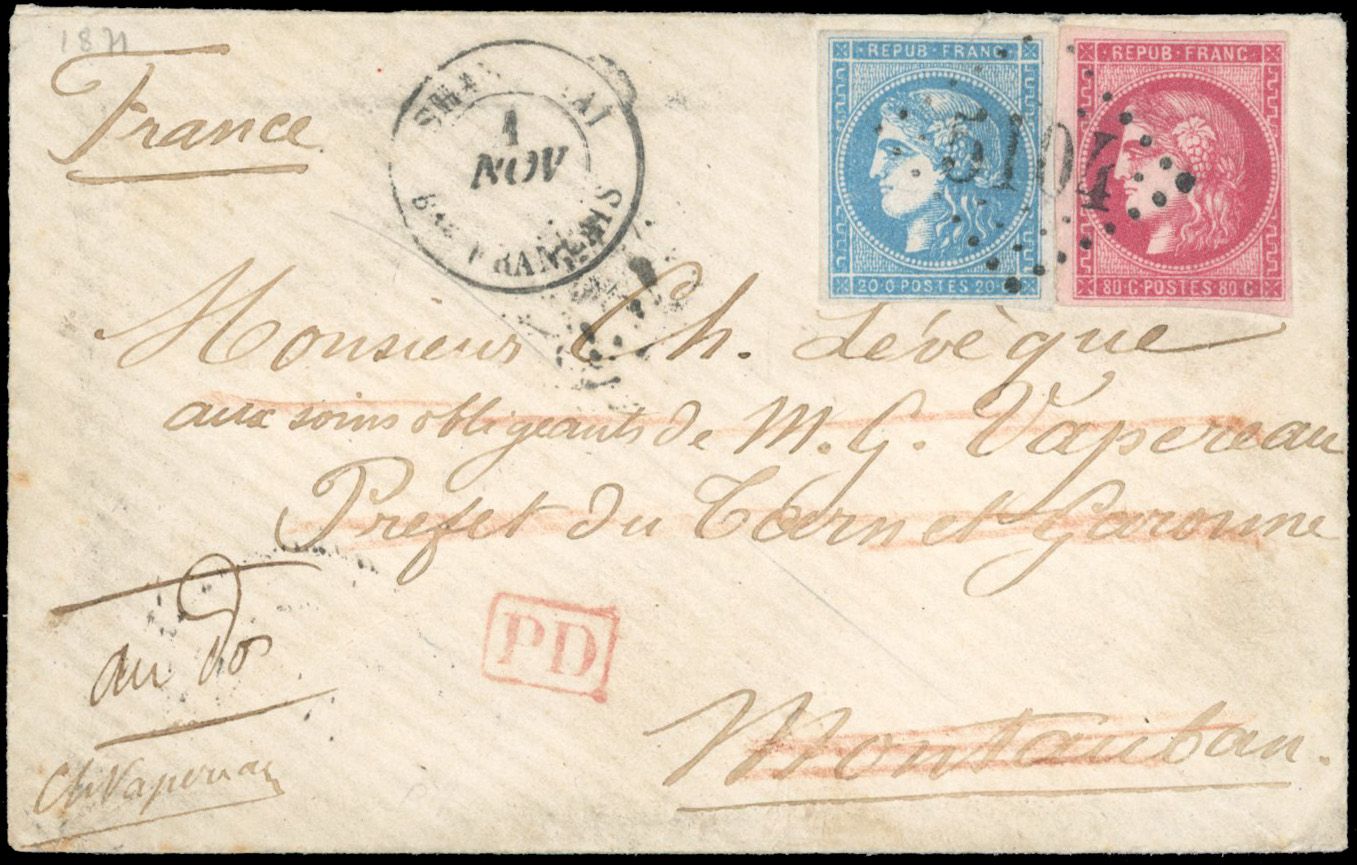 1871
France
SHANG HAI
1
NOV
Bau FRANCAIS
REPUB · FRANC
20 · C · POSTES · 20 · C
REPUB · FRANC
80 · C · POSTES · 80 · C
5104
Monsieur Ch. Lévèque
aux soins obligeants de M. G. Vapereau
Prefet du Tarn et Garonne
au dos
PD
Montauban.
Ch Vapereau